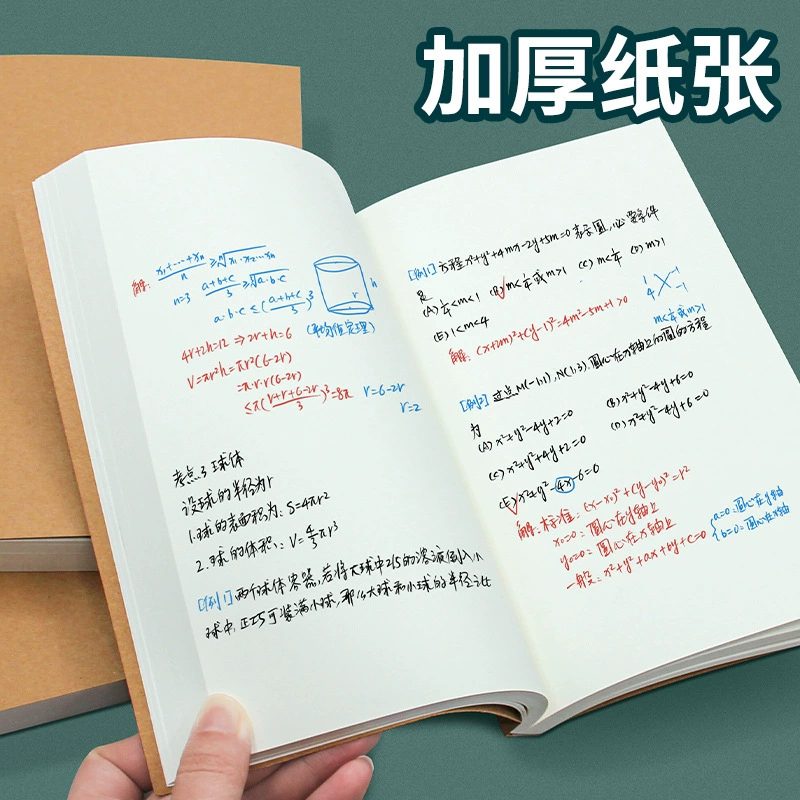 加厚纸张
解: x₁+…+xₙ/n ≥ ⁿ√x₁·x₂…xₙ
n=3 a+b+c/3 ≥ ³√a·b·c
a·b·c ≤ (a+b+c/3)³
r h
(平均值定理)
4r+2h=12 ⇒ 2r+h=6
V=πr²h=πr²(6-2r)
=π·r·r(6-2r)
≤π(r+r+6-2r/3)³=8π r=6-2r
r=2
考点3 球体
设球的半径为r
1.球的表面积为: S=4πr²
2.球的体积: V=4/3πr³
[例1]两个球体容器,若将大球中2/5的溶液倒入小
球中,正巧可装满小球,那么大球和小球的半径之比
[例1] 方程x²+y²+4mx-2y+5m=0表示圆,必要条件
是
(A) 1/4<m<1 (B) m<1/4或m>1 (C) m<1/4 (D) m>1
(E) 1<m<4
1 -1
4 -1
m<1/4或m>1
解: (x+2m)²+(y-1)²=4m²-5m+1>0
[例2] 过点M(-1,1),N(1,3).圆心在x轴上的圆的方程
为
(A) x²+y²-4y+2=0 (B) x²+y²-4y+6=0
(C) x²+y²+4y+2=0 (D) x²+y²-4y+6=0
(E) x²+y²-4x-6=0
解: 标准: (x-x₀)²+(y-y₀)²=r²
x₀=0: 圆心在y轴上
y₀=0: 圆心在x轴上
一般: x²+y²+ax+by+c=0 {a=0:圆心在y轴
b=0:圆心在x轴